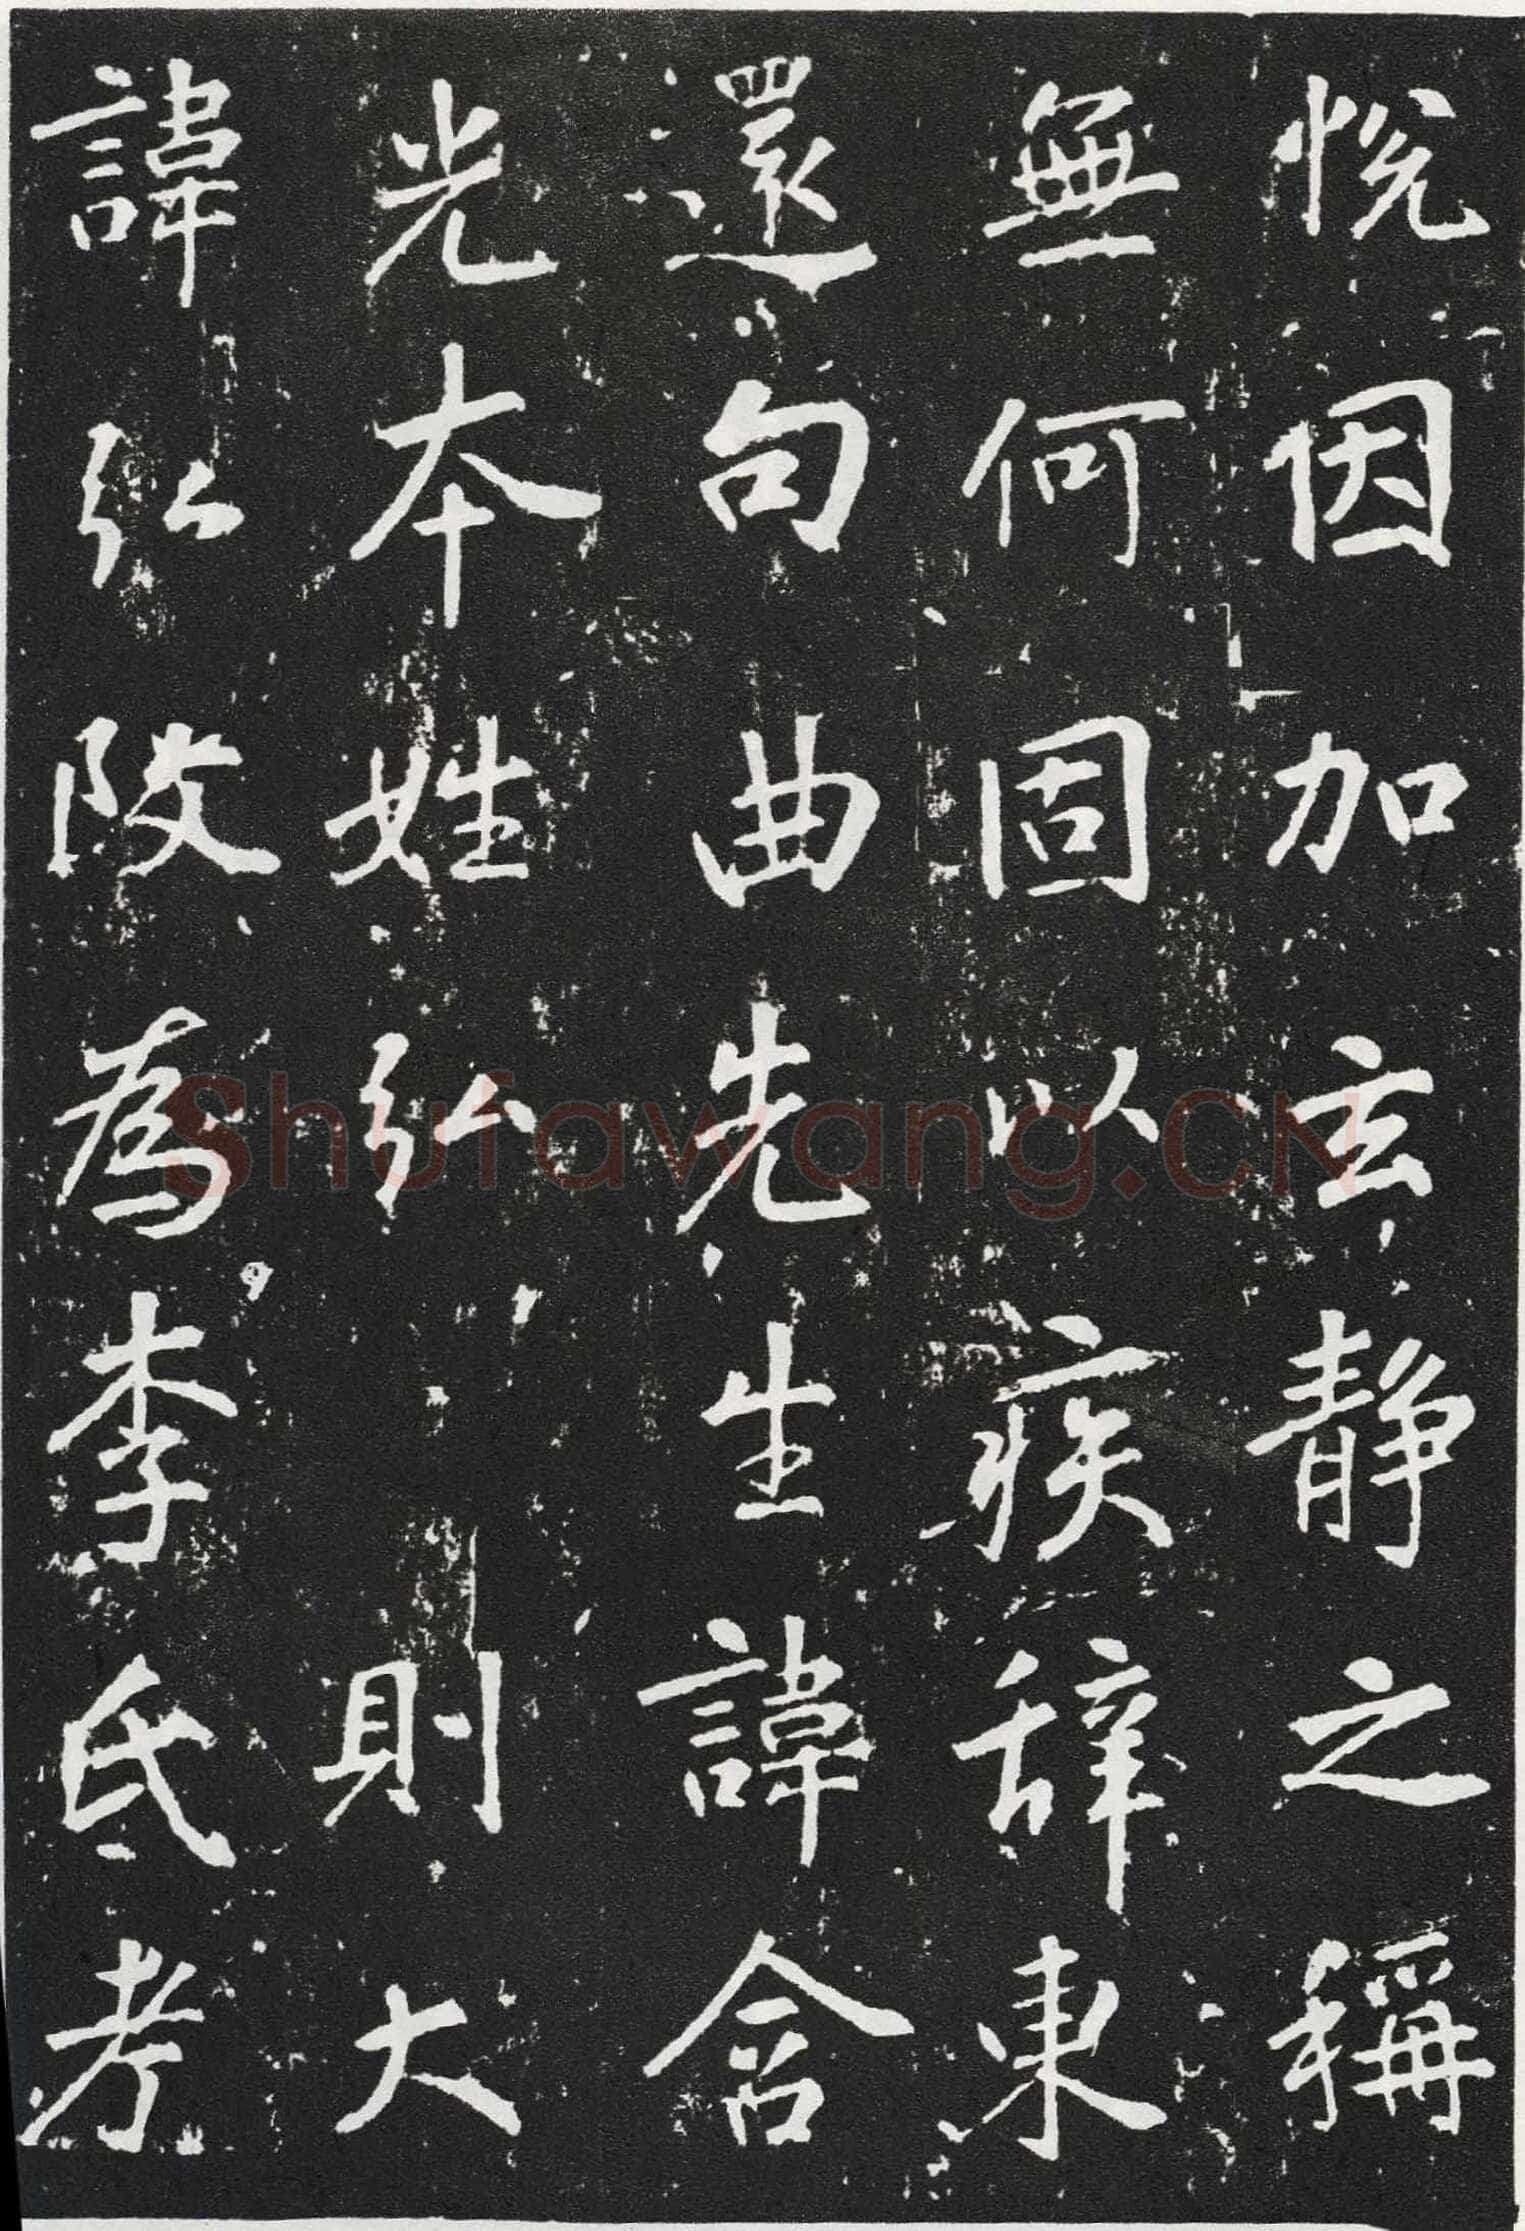 悅因加玄静之稱
無何固以疾辞東
還句曲先生諱含
光本姓弘 則大
諱弘改為李氏考
Shufawang.CN